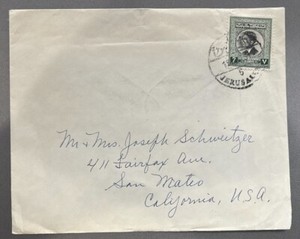 JERUSALEM
7
Mr & Mrs. Joseph Schweitzer
411 Fairfax Ave.
San Mateo
California, U.S.A.